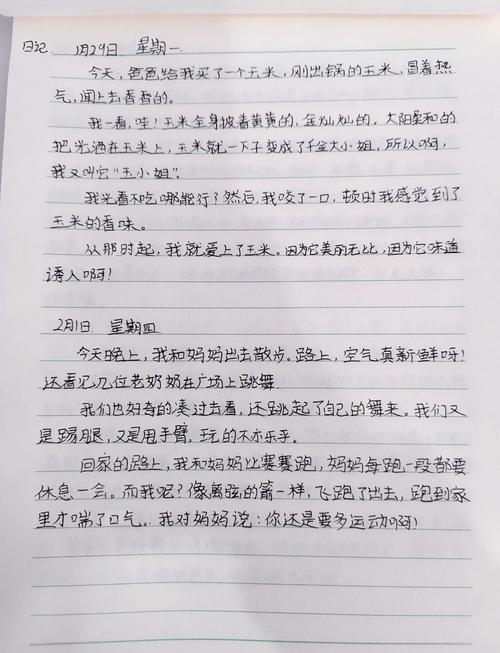 日记 1月29日 星期一
今天,爸爸给我买了一个玉米,刚出锅的玉米,冒着热
气,闻上去香香的。
我一看,哇!玉米全身披着黄黄的,金灿灿的,太阳柔和的
把光洒在玉米上,玉米就一下子变成了千金大小姐,所以啊,
我又叫它“玉小姐”。
我光看不吃哪能行?然后,我咬了一口,顿时我感觉到了
玉米的香味。
从那时起,我就爱上了玉米。因为它美丽无比,因为它味道
诱人啊!
2月1日 星期四
今天晚上,我和妈妈出去散步。路上,空气真新鲜呀!
还看见几位老奶奶在广场上跳舞
我们也好奇的凑过去看,还跳起了自己的舞来。我们又
是踢腿,又是甩手臂。玩的不亦乐乎。
回家的路上,我和妈妈比赛赛跑,妈妈每跑一段都要
休息一会。而我呢?像离弦的箭一样,飞跑了出去,跑到家
里才喘了口气。我对妈妈说:你还是要多运动啊!